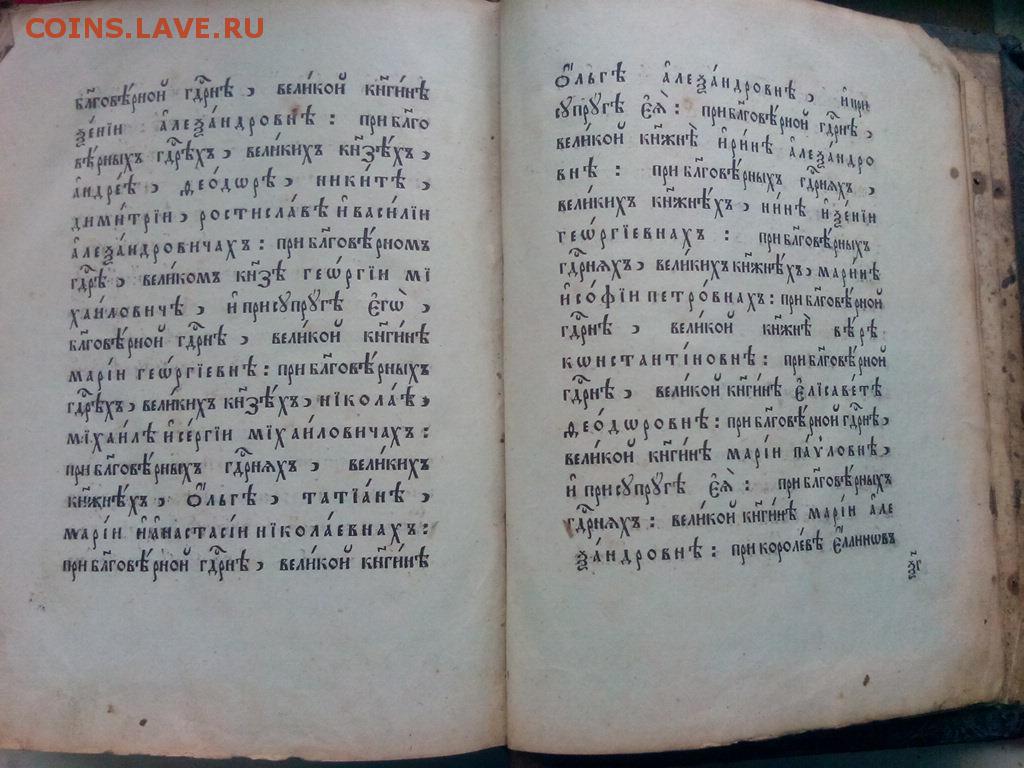 COINS.LAVE.RU
бл҃говѣ́рной гдⷭ҇рнѣ, вели́кой кн҃ги́нѣ
ѯе́нїи а҆леѯа́ндровнѣ: при бл҃го
вѣ́рныхъ гдⷭ҇рѣхъ, вели́кихъ кн҃зѣхъ,
а҆ндре́ѣ, ѳео́дѡрѣ, ники́тѣ,
дими́трїи, ростисла́вѣ и҆ васи́лїи
а҆леѯа́ндровичахъ: при бл҃говѣ́рномъ
гдⷭ҇рѣ, вели́комъ кн҃зѣ геѡ́ргїи мї
ха́иловичѣ, и҆ при сꙋпрꙋ́гѣ є҆гѡ̀,
бл҃говѣ́рной гдⷭ҇рнѣ, вели́кой кн҃ги́нѣ
марі́и геѡ́ргїевнѣ: при бл҃говѣ́рныхъ
гдⷭ҇рѣхъ, вели́кихъ кн҃зѣхъ, нїкола́ѣ,
мїхаи́лѣ и҆ се́ргїи мїха́иловичахъ:
при бл҃говѣ́рныхъ гдⷭ҇рняхъ, вели́кихъ
кн҃жнѣхъ, ѻ҆́льгѣ, татїа́нѣ,
марі́и и҆ а҆настасі́и нїкола́евнахъ:
при бл҃говѣ́рной гдⷭ҇рнѣ, вели́кой кн҃ги́нѣ
ѻ҆́льгѣ а҆леѯа́ндровнѣ, и҆ при
сꙋпрꙋ́гѣ є҆ѧ̀: при бл҃говѣ́рной гдⷭ҇рнѣ,
вели́кой кн҃жнѣ̀ и҆ри́нѣ а҆леѯа́ндро
внѣ: при бл҃говѣ́рныхъ гдⷭ҇рняхъ,
вели́кихъ кн҃жнѣхъ, ни́нѣ и҆ ѯе́нїи
геѡ́ргїевнахъ: при бл҃говѣ́рныхъ
гдⷭ҇рняхъ, вели́кихъ кн҃жнѣхъ, мари́нѣ
и҆ софі́и петро́внахъ: при бл҃говѣ́рной
гдⷭ҇рнѣ, вели́кой кн҃жнѣ̀ вѣ́рѣ
кѡнстанті́новнѣ: при бл҃говѣ́рной
гдⷭ҇рнѣ, вели́кой кн҃ги́нѣ є҆лїсаве́тѣ
ѳео́дѡровнѣ: при бл҃говѣ́рной гдⷭ҇рнѣ,
вели́кой кн҃ги́нѣ марі́и па́ѵловнѣ,
и҆ при сꙋпрꙋ́гѣ є҆ѧ̀: при бл҃говѣ́рныхъ
гдⷭ҇рняхъ: вели́кой кн҃ги́нѣ марі́и а҆ле
ѯа́ндровнѣ: при короле́вѣ є҆́ллинѡвъ
ѯ҃г